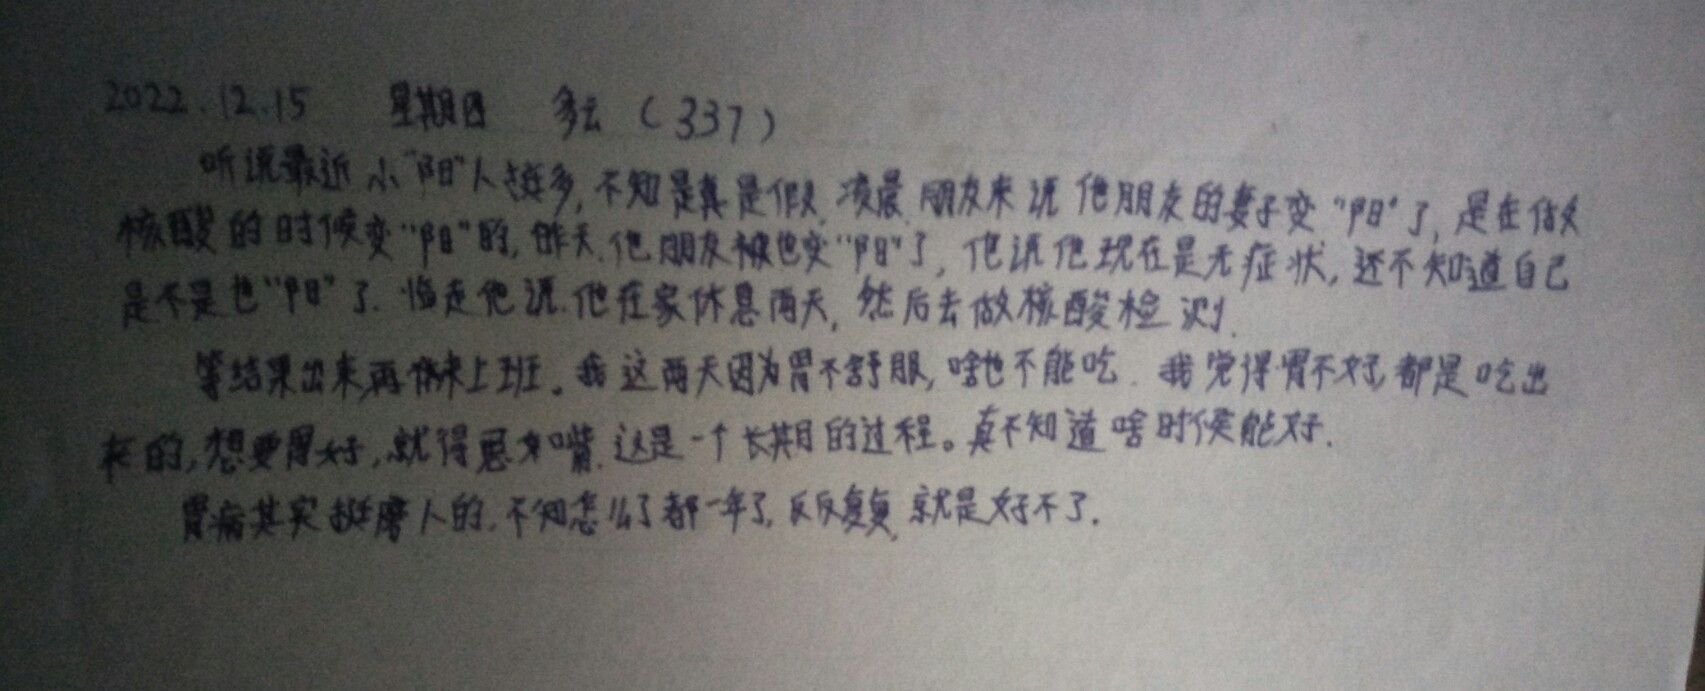 2022.12.15 星期四 多云（337）
听说最近小“阳”人挺多,不知是真是假.凌晨.朋友来说他朋友的妻子变“阳”了,是在做
核酸的时候变“阳”的,昨天.他朋友被也变“阳”了,他说他现在是无症状,还不知道自己
是不是也“阳”了.临走他说.他在家休息两天,然后去做核酸检测.
等结果出来,再来上班。我这两天因为胃不舒服,啥也不能吃.我觉得胃不好,都是吃出
来的,想要胃好,就得忌嘴.这是一个长期的过程。真不知道啥时候能好.
胃病其实挺磨人的.不知怎么了都一年了,反反复复,就是好不了.